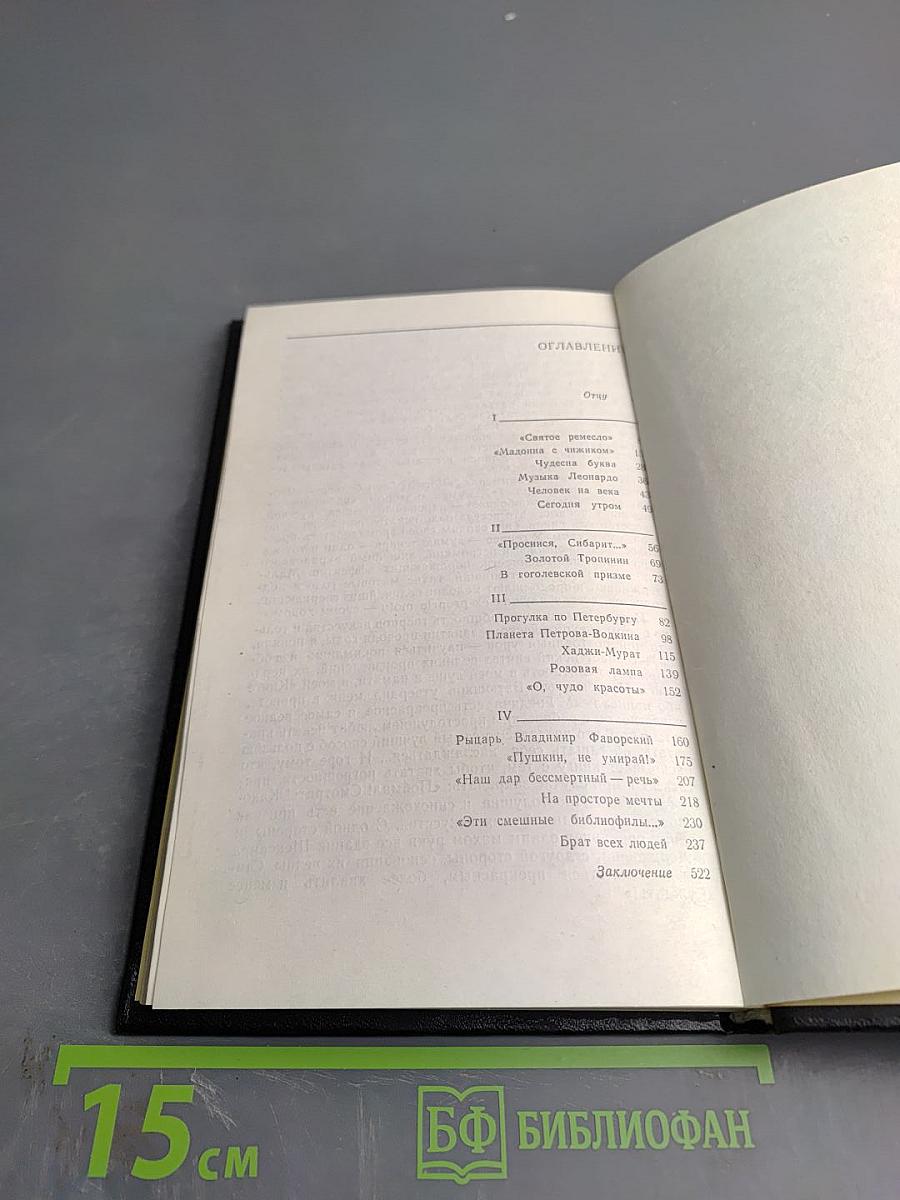 ОГЛАВЛЕНИ
Отцу
I
«Святое ремесло»
«Мадонна с чижиком»
Чудесна буква
Музыка Леонардо
Человек на века
Сегодня утром
II
«Проснися, Сибарит...» 56
Золотой Тропинин 69
В гоголевской призме 73
III
Прогулка по Петербургу 82
Планета Петрова-Водкина 98
Хаджи-Мурат 115
Розовая лампа 139
«О, чудо красоты» 152
IV
Рыцарь Владимир Фаворский 160
«Пушкин, не умирай!» 175
«Наш дар бессмертный — речь» 207
На просторе мечты 218
«Эти смешные библиофилы...» 230
Брат всех людей 237
Заключение 522
15 см
БФ БИБЛИОФАН